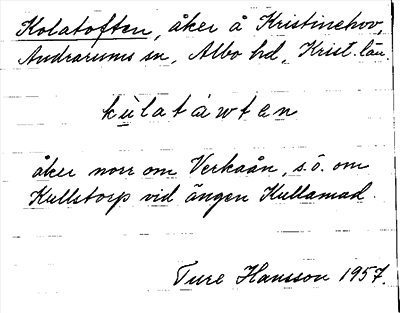 Kolatoften, åker å Kristinehov,
Andrarums sn, Albo hd, Krist. län.
kùlatáwten
åker norr om Verkaån, s.ö. om
Kullstorp vid ängen Kullamad.
Ture Hansson 1957.